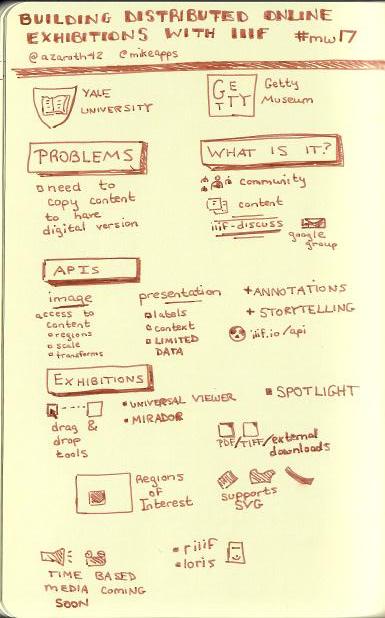 BUILDING DISTRIBUTED ONLINE
EXHIBITIONS WITH IIIF #mw17
@azaroth42 @mikeapps
YALE
UNIVERSITY
GE
T
TTY
Getty
Museum
PROBLEMS
need to
copy content
to have
digital version
WHAT IS IT?
community
content
iiif-discuss
google
group
APIs
image
access to
content
regions
scale
transforms
presentation
labels
context
LIMITED
DATA
+ANNOTATIONS
+ STORYTELLING
iiif.io/api
EXHIBITIONS
drag &
drop
tools
UNIVERSAL VIEWER
MIRADOR
SPOTLIGHT
PDF/TIFF/external
downloads
Regions
of
Interest
supports
SVG
TIME BASED
MEDIA COMING
SOON
riiif
loris